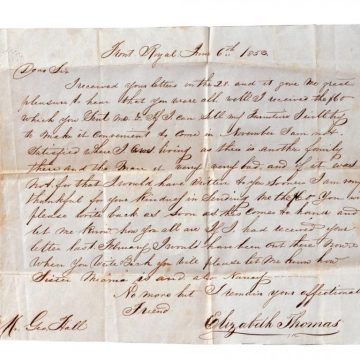 Front Royal June 6th 1853
Dear Sir
I received your letters on the 28 and it gave me great
pleasure to hear that you were all well I received the $60
which you sent me & if I can sell my furniture I will try
to make it convenient to come in November I am not
satisfied where I am living as there is another family
there and the man is very very bad. and if it was
not for that I would have written to you sooner I am very
thankful for your kindness in sending me the
please write back as soon as this comes to hand and
let me know how you all are If I had received your
letter last I would have been out there Now
When you write back you will please let me know how
Sister is and also Nancy
No more but I remain your affectionate
Friend
Elizabeth Thomas
Geo Hall